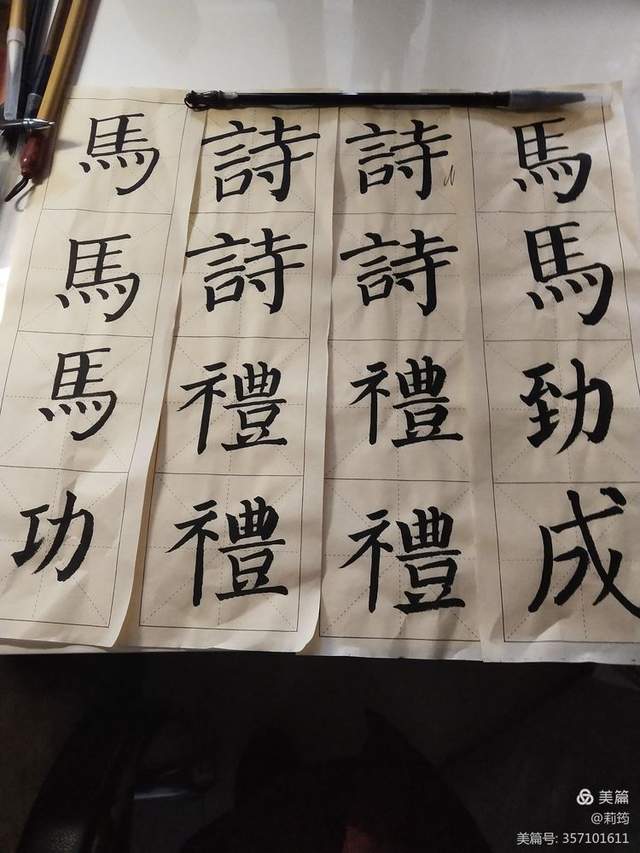 馬馬勁成
詩詩禮禮
詩詩禮禮
馬馬馬功
美篇
@莉筠
美篇号: 357101611